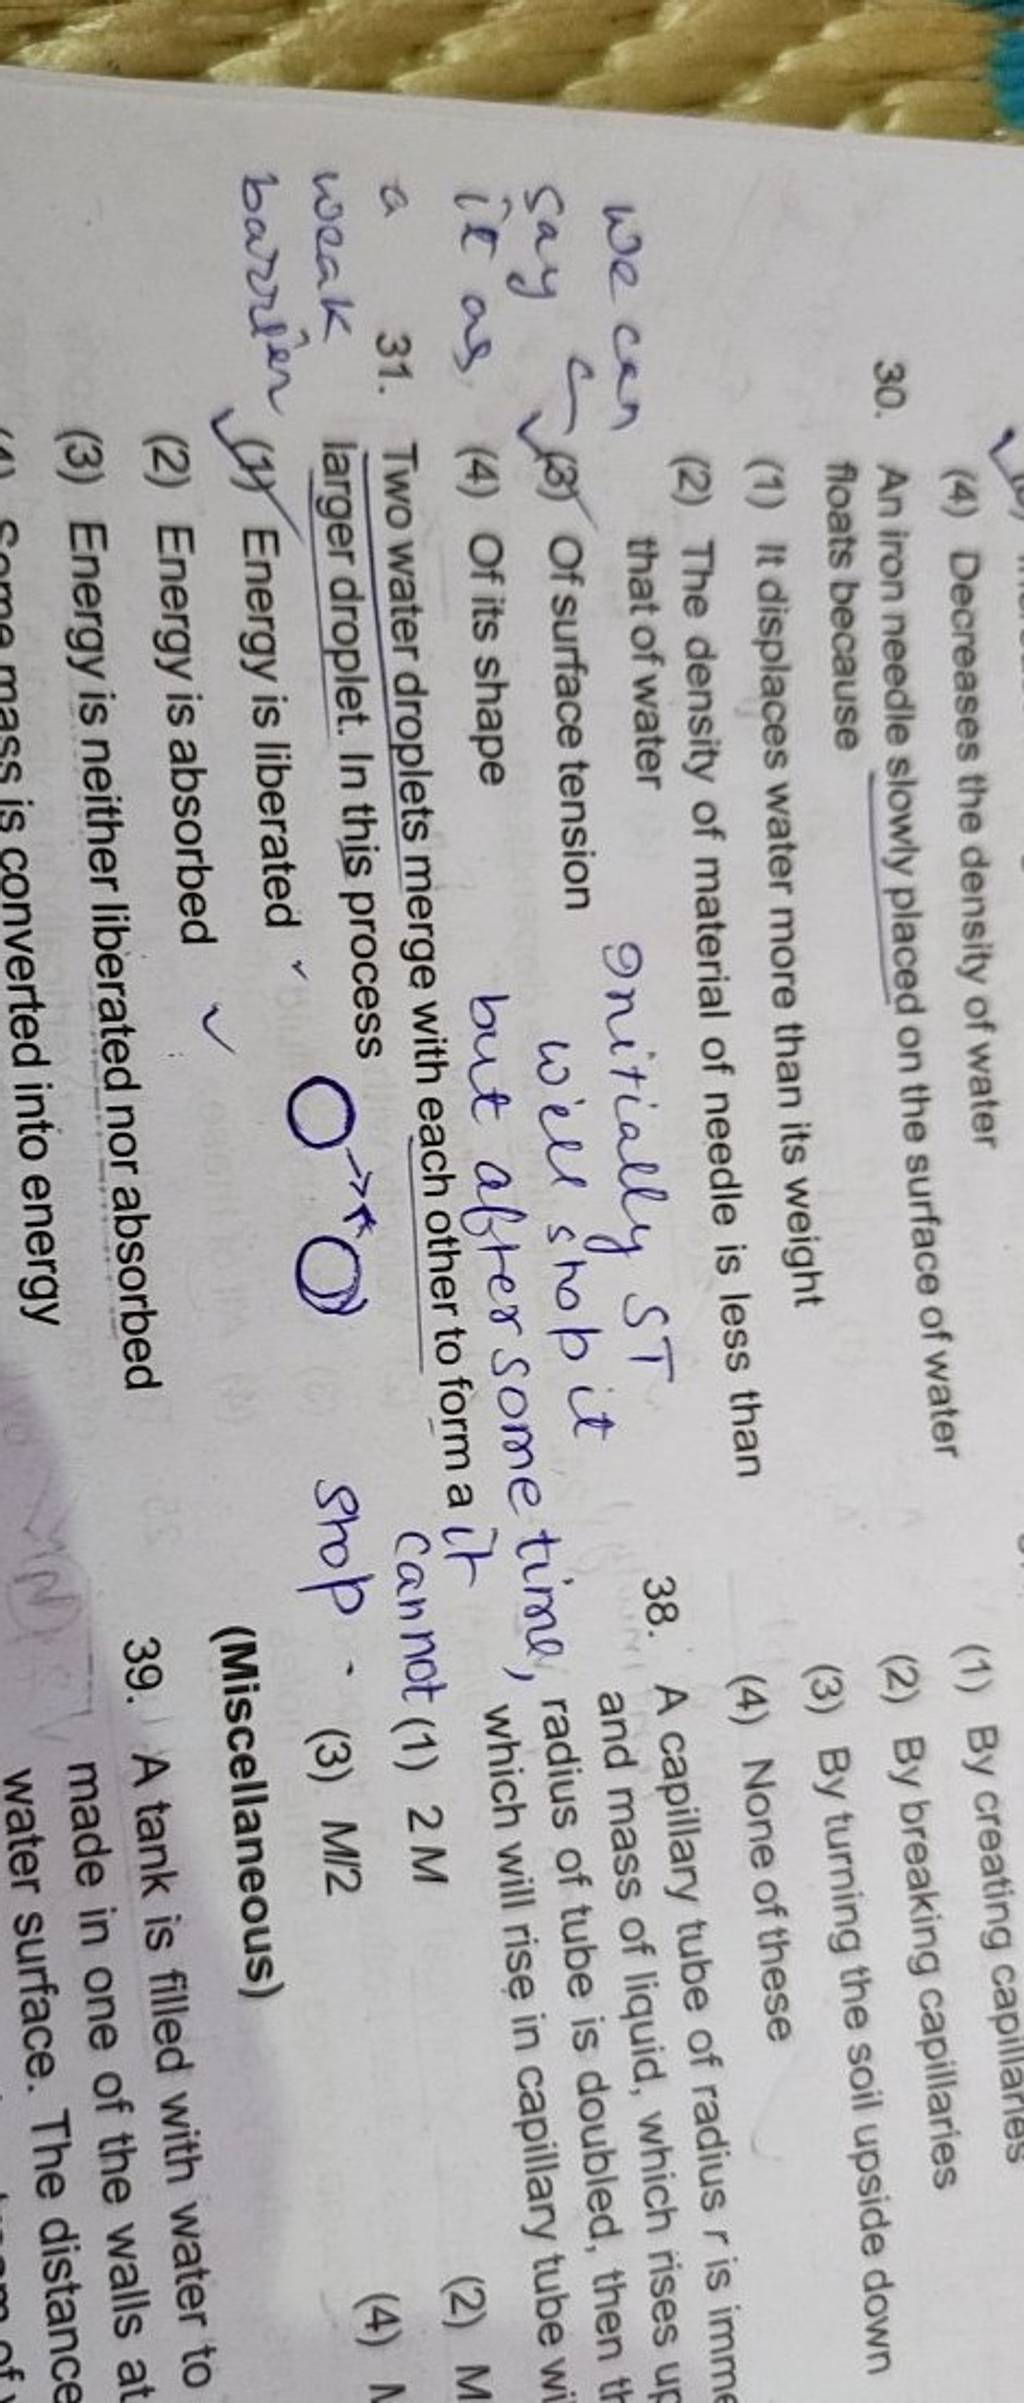 (4) Decreases the density of water
30. An iron needle slowly placed on the surface of water
floats because
(1) It displaces water more than its weight
(2) The density of material of needle is less than
that of water
(3) Of surface tension
(4) Of its shape
we can
say
it as
a
weak
barrier
Initially ST
will stop it
but after some time,
it
cannot
stop.
31. Two water droplets merge with each other to form a
larger droplet. In this process
(1) Energy is liberated
(2) Energy is absorbed
(3) Energy is neither liberated nor absorbed
(4) Some mass is converted into energy
(1) By creating capillaries
(2) By breaking capillaries
(3) By turning the soil upside down
(4) None of these
38. A capillary tube of radius r is imme
and mass of liquid, which rises up
radius of tube is doubled, then th
which will rise in capillary tube wi
(1) 2 M
(2) M
(3) M/2
(4)
(Miscellaneous)
39. A tank is filled with water to
made in one of the walls at
water surface. The distance